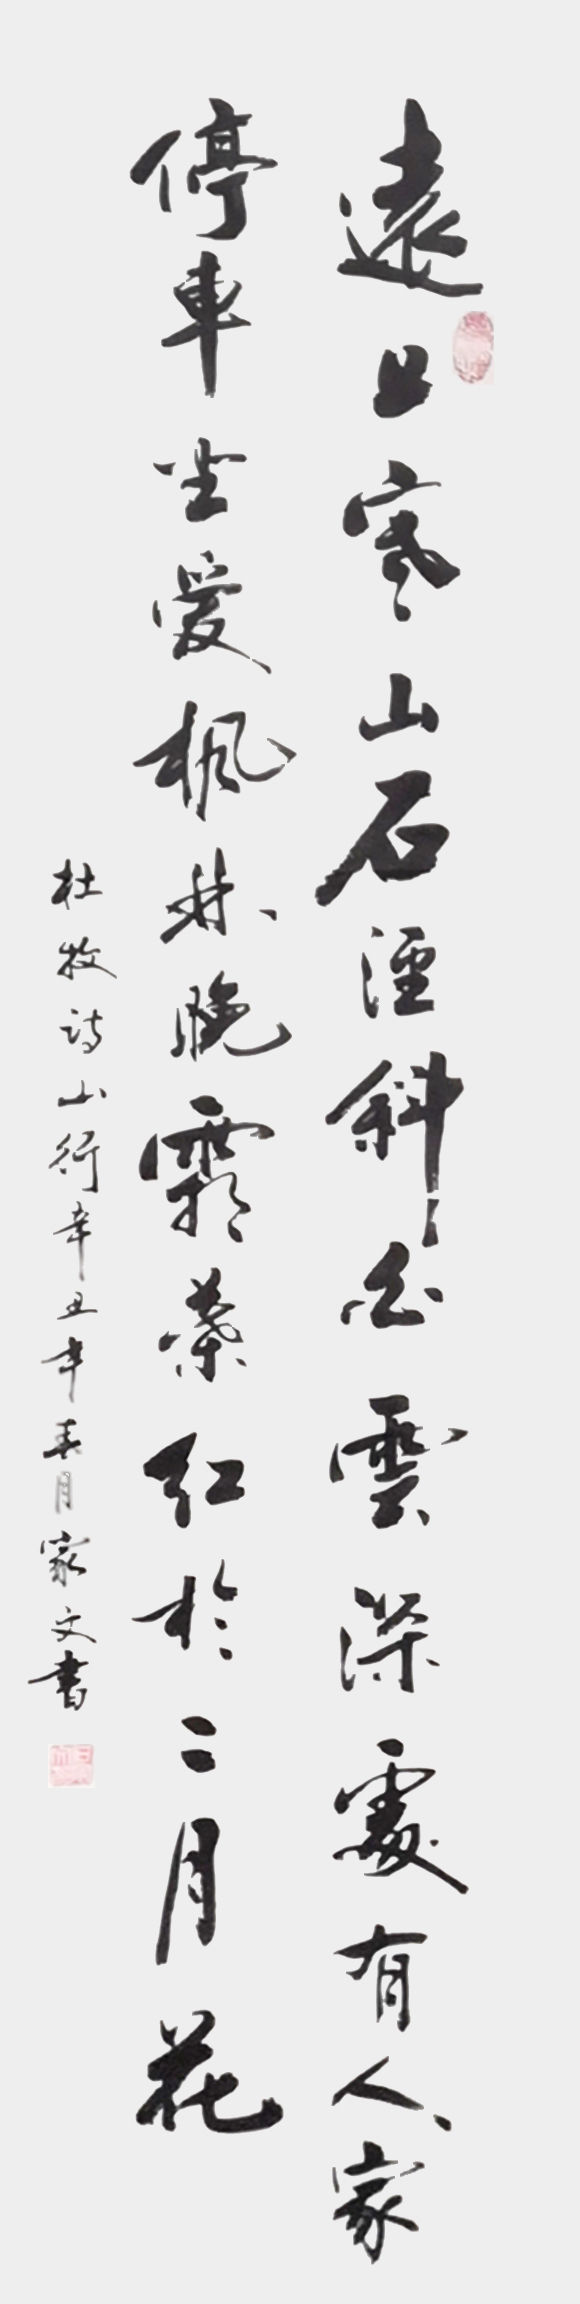 遠上寒山石徑斜白雲深處有人家
停車坐愛楓林晚霜葉紅於二月花
杜牧诗山行辛丑年春月家文書